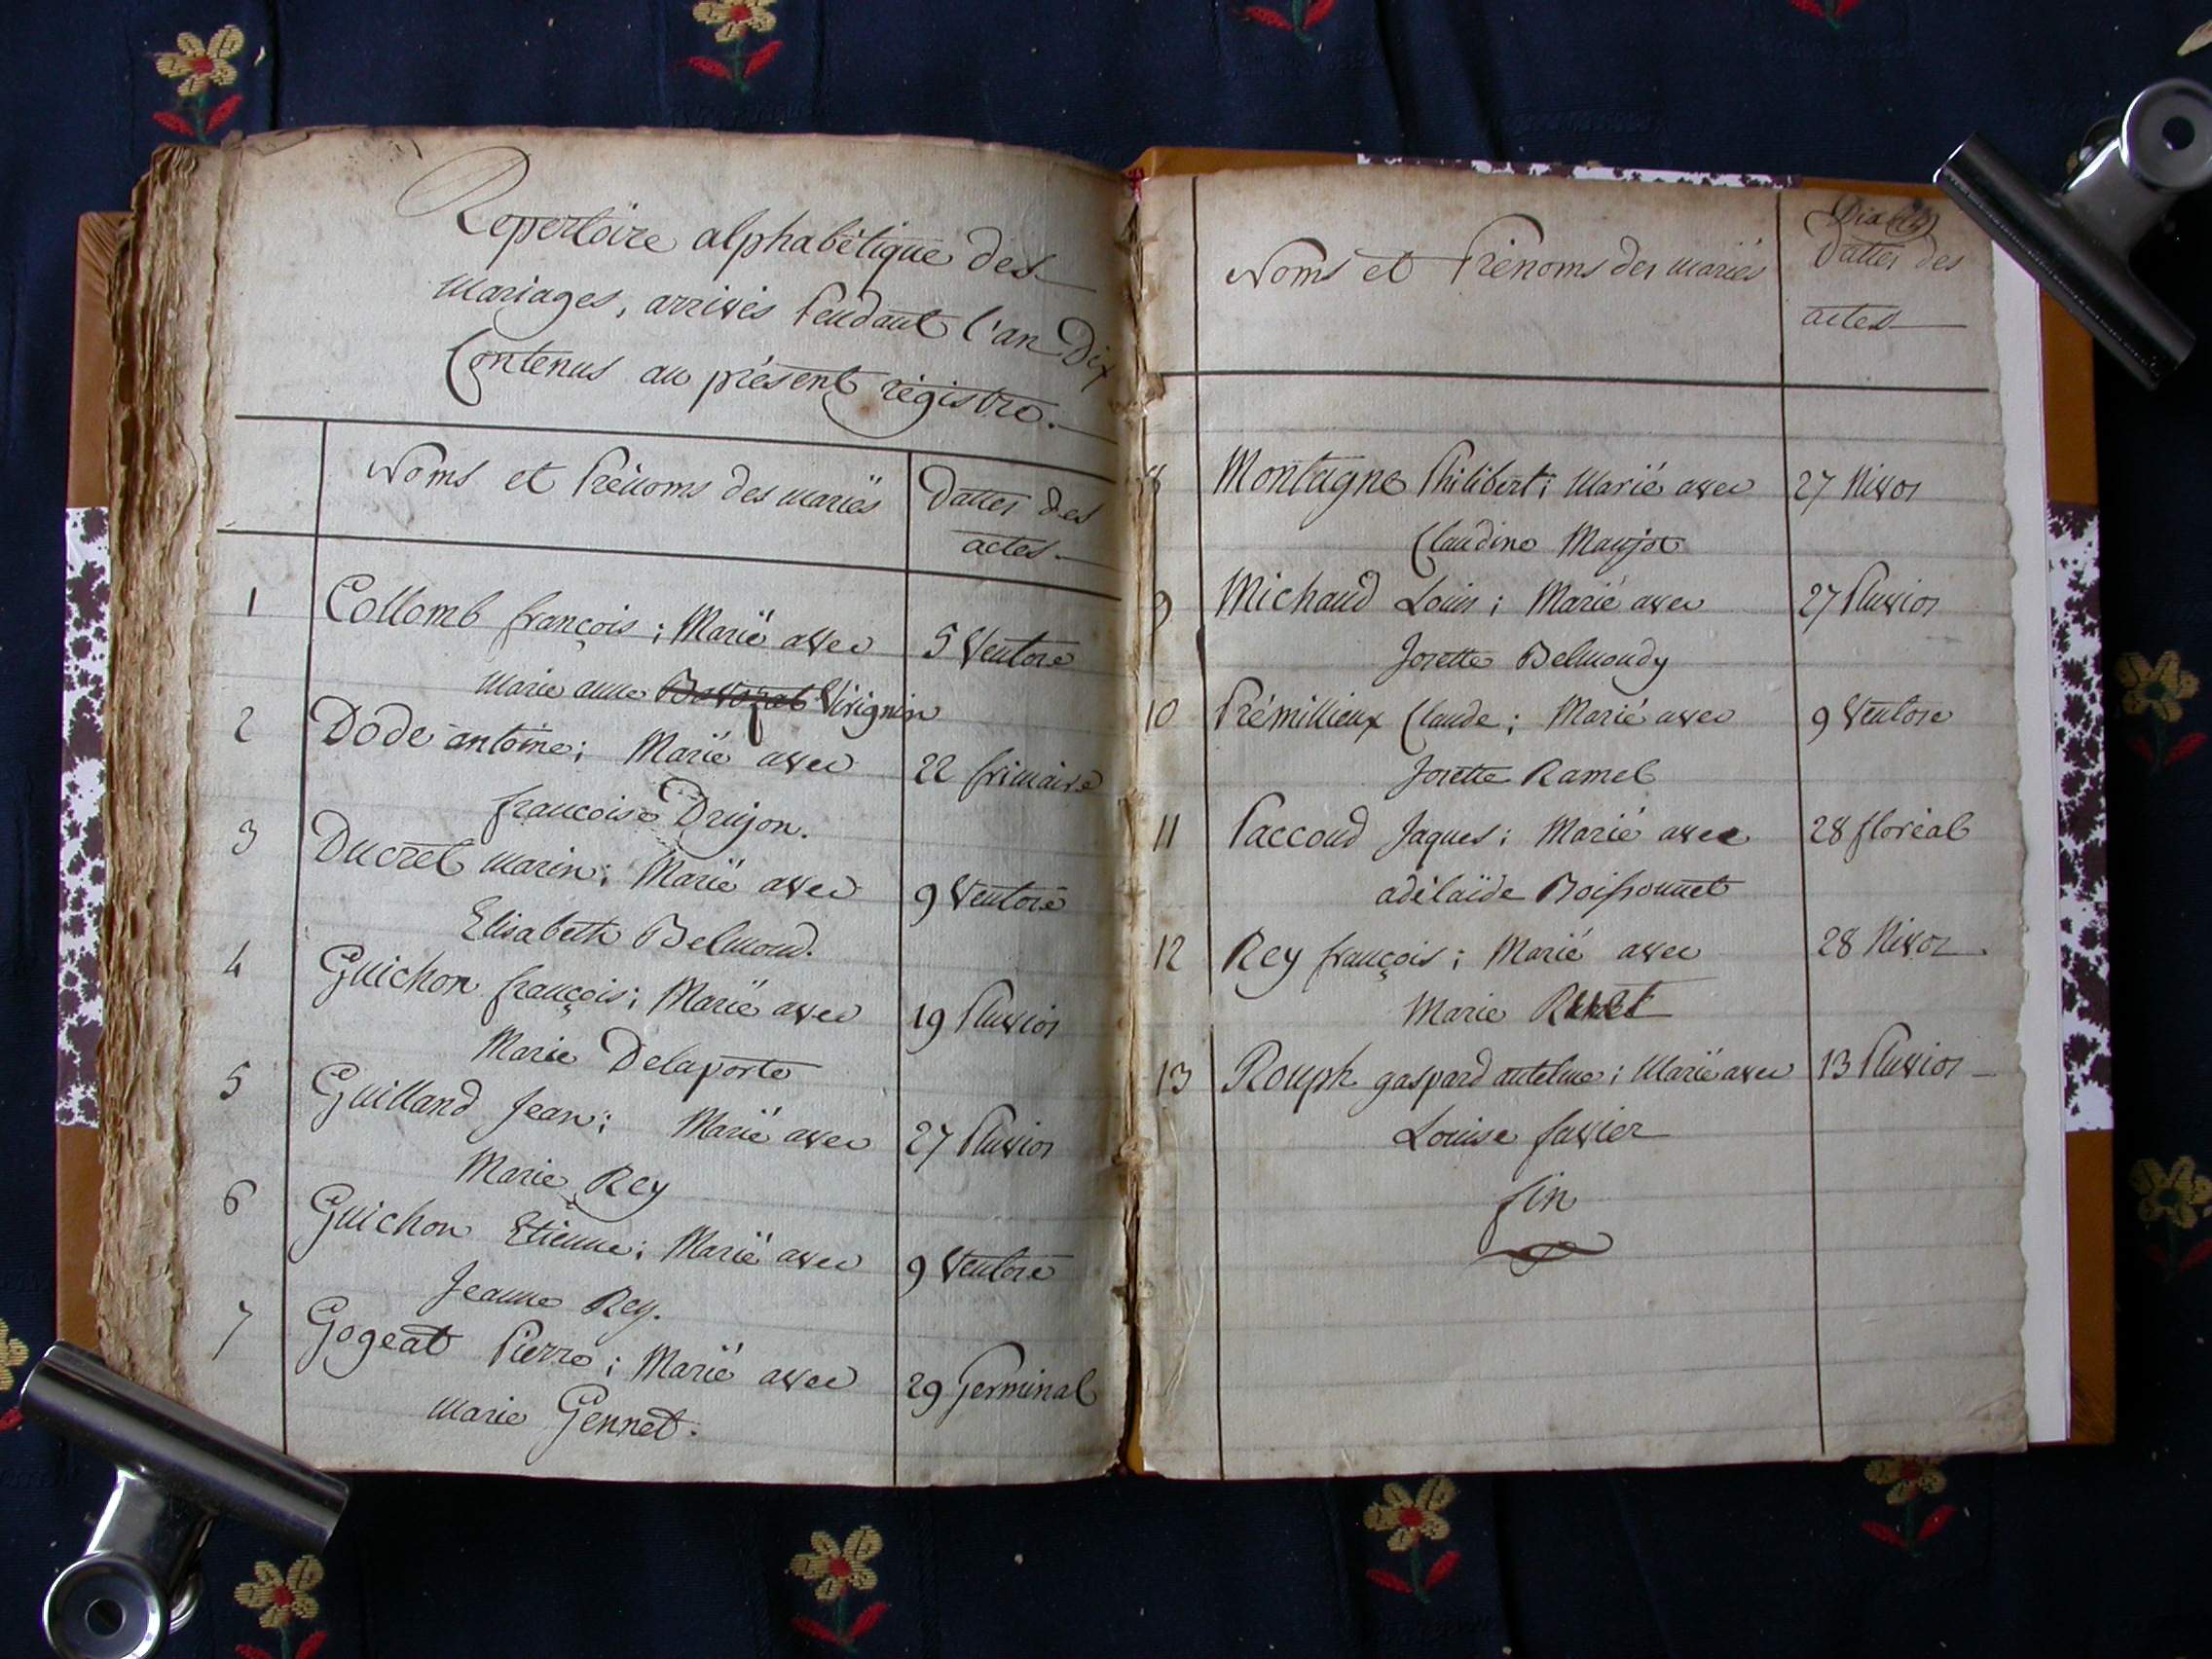 Repertoire alphabétique des
mariages, arrivés Pendant l'an Dix
Contenus au présent régistre.
Noms et Prénoms des mariés
Dattes des
actes
1 Collomb françois ; Marié avec 5 Ventose
marie anne Virignin
2 Dode antoine ; Marié avec 22 frimaire
francoise Drujon.
3 Ducret marin ; Marié avec 9 Ventose
Elisabeth Belmond.
4 Guichon françois ; Marié avec 19 Pluvios
Marie Delaporte
5 Guilland Jean ; Marié avec 27 Pluvios
Marie Rey
6 Guichon Etienne ; Marié avec 9 Ventose
Jeanne Rey.
7 Gogeat Pierre ; Marié avec 29 Germinal
marie Gennet.
Noms et Prénoms des mariés
Dattes des
actes
8 Montagne Philibert ; Marié avec 27 Nivos
Claudine Maujot
9 Michaud Louis ; Marié avec 27 Pluvios
Josette Belmondy
10 Prémillieux Claude ; Marié avec 9 Ventose
Josette Ramel
11 Paccoud Jaques ; Marié avec 28 floréal
adélaïde Boissonnet
12 Rey françois ; Marié avec 28 Nivos
Marie
13 Rouph gaspard antelme ; Marié avec 13 Pluvios
Louise favier
fin